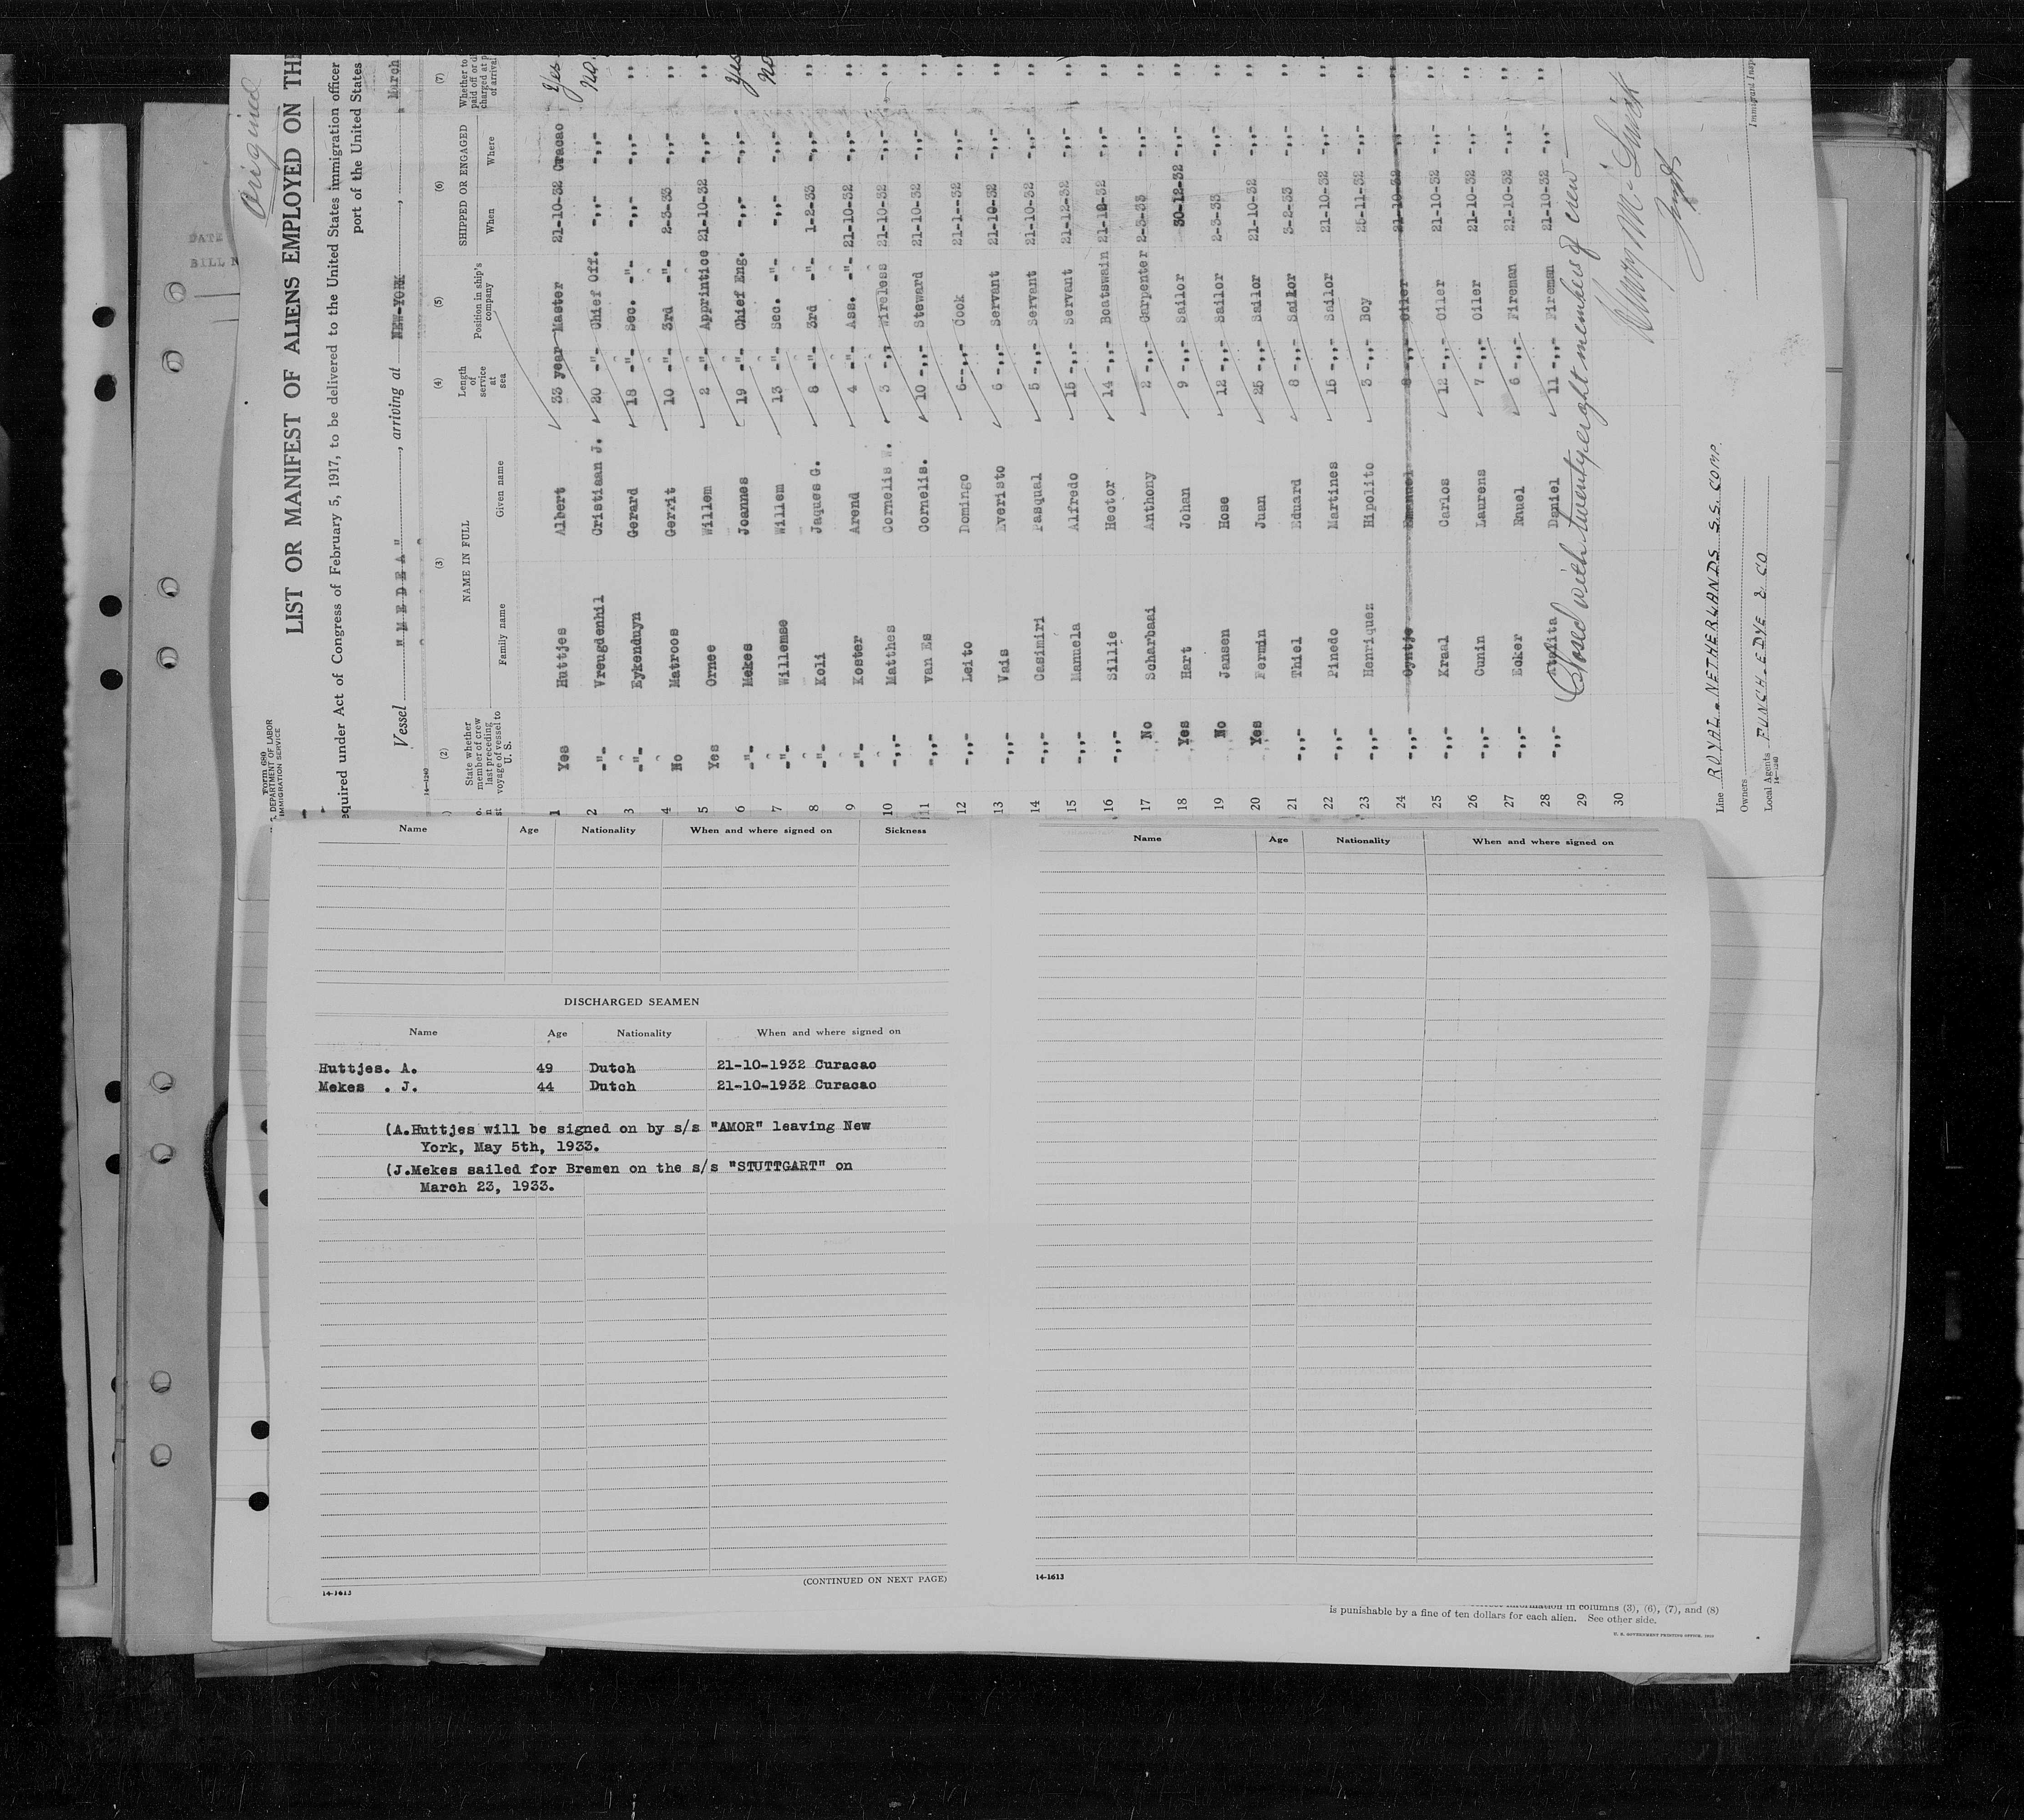 DATE
BILL N
Original
Form 680
U. S. DEPARTMENT OF LABOR
IMMIGRATION SERVICE
LIST OR MANIFEST OF ALIENS EMPLOYED ON THE
equired under Act of Congress of February 5, 1917, to be delivered to the United States immigration officer
port of the United States
Vessel "MEDEA", arriving at NEW-YORK, March
14-1240
(2) (3) (4) (5) (6) (7)
State whether member of crew last preceding voyage of vessel to U. S. NAME IN FULL Length of service at sea Position in ship's company SHIPPED OR ENGAGED Whether to paid off or charged at of arrival
Family name Given name When Where
1 Yes Huttjes Albert 33 year Master 21-10-32 Cracao Yes
2 -"- Vreugdenhil Cristiaan J. 20 -"- Chief Off. -,,- -,,- No.
3 -"- Eykenduyn Gerard 18 -"- Sec. -"- -,,- -,,- ,,
4 No Matroos Gerrit 10 -"- 3rd -"- 2-3-33 -,,- ,,
5 Yes Ornee Willem 2 -"- Apprintice 21-10-32 -,,- ,,
6 -"- Mekes Joannes 19 -"- Chief Eng. -,,- -,,- Yes
7 -"- Willemse Willem 13 -"- Sec. -"- -,,- -,,- No
8 -"- Koli Jaques G. 8 -"- 3rd -"- 1-2-33 -,,- ,,
9 -"- Koster Arend 4 -"- Ass. -"- 21-10-32 -,,- ,,
10 -,,- Matthes Cornelis W. 3 -,,- Wireless 21-10-32 -,,- ,,
11 -,,- van Es Cornelis. 10 -,,- Steward 21-10-32 -,,- ,,
12 -,,- Leito Domingo 6--,,- Cook 21-1--32 -,,- ,,
13 -,,- Vais Everisto 6 -,,- Servant 21-10-32 -,,- ,,
14 -,,- Casimiri Pasqual 5 -,,- Servant 21-10-32 -,,- ,,
15 -,,- Manuela Alfredo 15 -,,- Servant 21-12-32 -,,- ,,
16 -,,- Sillie Hector 14 -,,- Boatswain 21-10-32 -,,- ,,
17 No Scharbaai Anthony 2 -,,- Carpenter 2-3-33 -,,- ,,
18 Yes Hart Johan 9 -,,- Sailor 30-12-32 -,,- ,,
19 No Jansen Hose 12 -,,- Sailor 2-3-33 -,,- ,,
20 Yes Fermin Juan 25 -,,- Sailor 21-10-32 -,,- ,,
21 -,,- Thiel Eduard 8 -,,- Sailor 3-2-33 -,,- ,,
22 -,,- Pinedo Martines 15 -,,- Sailor 21-10-32 -,,- ,,
23 -,,- Henriquez Hipolito 3 -,,- Boy 25-11-32 -,,- ,,
24 -,,- Cyntje Emanuel 8 -,,- Oiler 21-10-32 -,,- ,,
25 -,,- Kraal Carlos 12 -,,- Oiler 21-10-32 -,,- ,,
26 -,,- Cunin Laurens 7 -,,- Oiler 21-10-32 -,,- ,,
27 -,,- Ecker Emuel 6 -,,- Fireman 21-10-32 -,,- ,,
28 -,,- Daniel 11 -,,- Fireman 21-10-32 -,,- ,,
29 Closed with twenty eight members of crew
30
Line ROYAL-NETHERLANDS S.S. COMP.
Owners
Local Agents FUNCH-EDYE & CO
14-1240
Immigrant Insp
Name Age Nationality When and where signed on Sickness
DISCHARGED SEAMEN
Name Age Nationality When and where signed on
Huttjes. A. 49 Dutch 21-10-1932 Curacao
Mekes . J. 44 Dutch 21-10-1932 Curacao
(A.Huttjes will be signed on by s/s "AMOR" leaving New
York, May 5th, 1933.
(J.Mekes sailed for Bremen on the s/s "STUTTGART" on
March 23, 1933.
14-1613
(CONTINUED ON NEXT PAGE)
Name Age Nationality When and where signed on
14-1613
information in columns (3), (6), (7), and (8)
is punishable by a fine of ten dollars for each alien. See other side.
U. S. GOVERNMENT PRINTING OFFICE